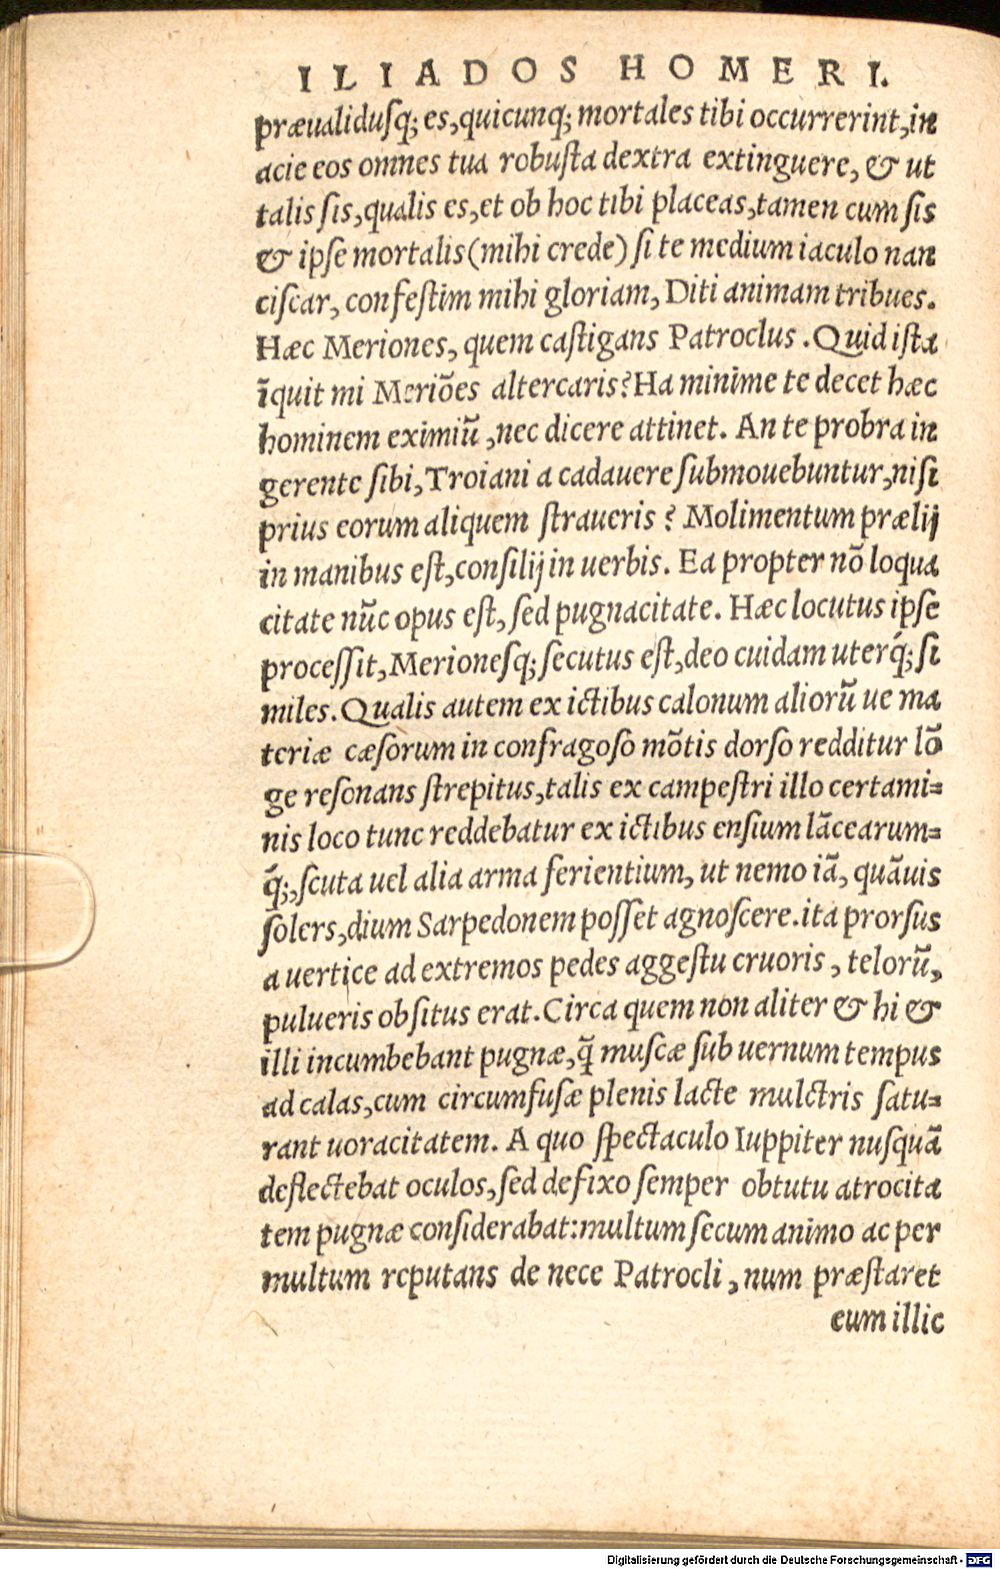 ILIADOS HOMERI.
præualidusq; es, quicunq; mortales tibi occurrerint, in
acie eos omnes tua robusta dextra extinguere, & ut
talis sis, qualis es, et ob hoc tibi placeas, tamen cum sis
& ipse mortalis (mihi crede) si te medium iaculo nan
ciscar, confestim mihi gloriam, Diti animam tribues.
Hæc Meriones, quem castigans Patroclus. Quid ista
īquit mi Meriōes altercaris? Ha minime te decet hæc
hominem eximiū, nec dicere attinet. An te probra in
gerente sibi, Troiani a cadauere submouebuntur, nisi
prius eorum aliquem straueris? Molimentum prælij
in manibus est, consilij in uerbis. Ea propter nō loqua
citate nūc opus est, sed pugnacitate. Hæc locutus ipse
processit, Merionesq; secutus est, deo cuidam uterq́; si
miles. Qualis autem ex ictibus calonum aliorū ue ma
teriæ cæsorum in confragoso mōtis dorso redditur lō
ge resonans strepitus, talis ex campestri illo certami=
nis loco tunc reddebatur ex ictibus ensium lācearum=
q́;, scuta uel alia arma ferientium, ut nemo iā, quāuis
solers, dium Sarpedonem posset agnoscere. ita prorsus
a uertice ad extremos pedes aggestu cruoris, telorū,
pulueris obsitus erat. Circa quem non aliter & hi &
illi incumbebant pugnæ, q̄ muscæ sub uernum tempus
ad calas, cum circumfusæ plenis lacte mulctris satu=
rant uoracitatem. A quo spectaculo Iuppiter nusquā
deflectebat oculos, sed defixo semper obtutu atrocita
tem pugnæ considerabat: multum secum animo ac per
multum reputans de nece Patrocli, num præstaret
eum illic
Digitalisierung gefördert durch die Deutsche Forschungsgemeinschaft - DFG